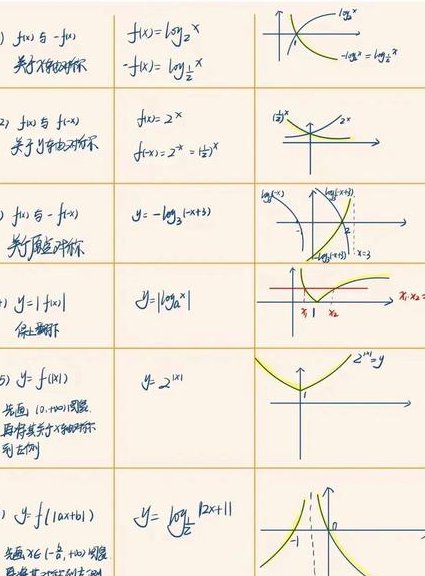 1) f(x) 与 -f(x)
关于x轴对称
f(x) = log₂x
-f(x) = log½x
log₂x
-log₂x = log½x
2) f(x) 与 f(-x)
关于y轴对称
f(x) = 2ˣ
f(-x) = 2⁻ˣ = (½)ˣ
(½)ˣ
2ˣ
) f(x) 与 -f(-x)
关于原点对称
y = -log₃(-x+3)
log₃(-x)
log₃(-x+3)
2
-log₃(-x+3)
x=3
) y = |f(x)|
保上翻下
y = |logₐx|
x₁ 1 x₂
x₁·x₂=
5) y = f(|x|)
先画 (0,+∞) 图象
再将其关于y轴对称
到左侧
y = 2^|x|
2^|x| = y
1
) y = f(|ax+b|)
先画 x∈(-b/a, +∞) 图象
再将其对称到左侧
y = log½|2x+1|
-1
0